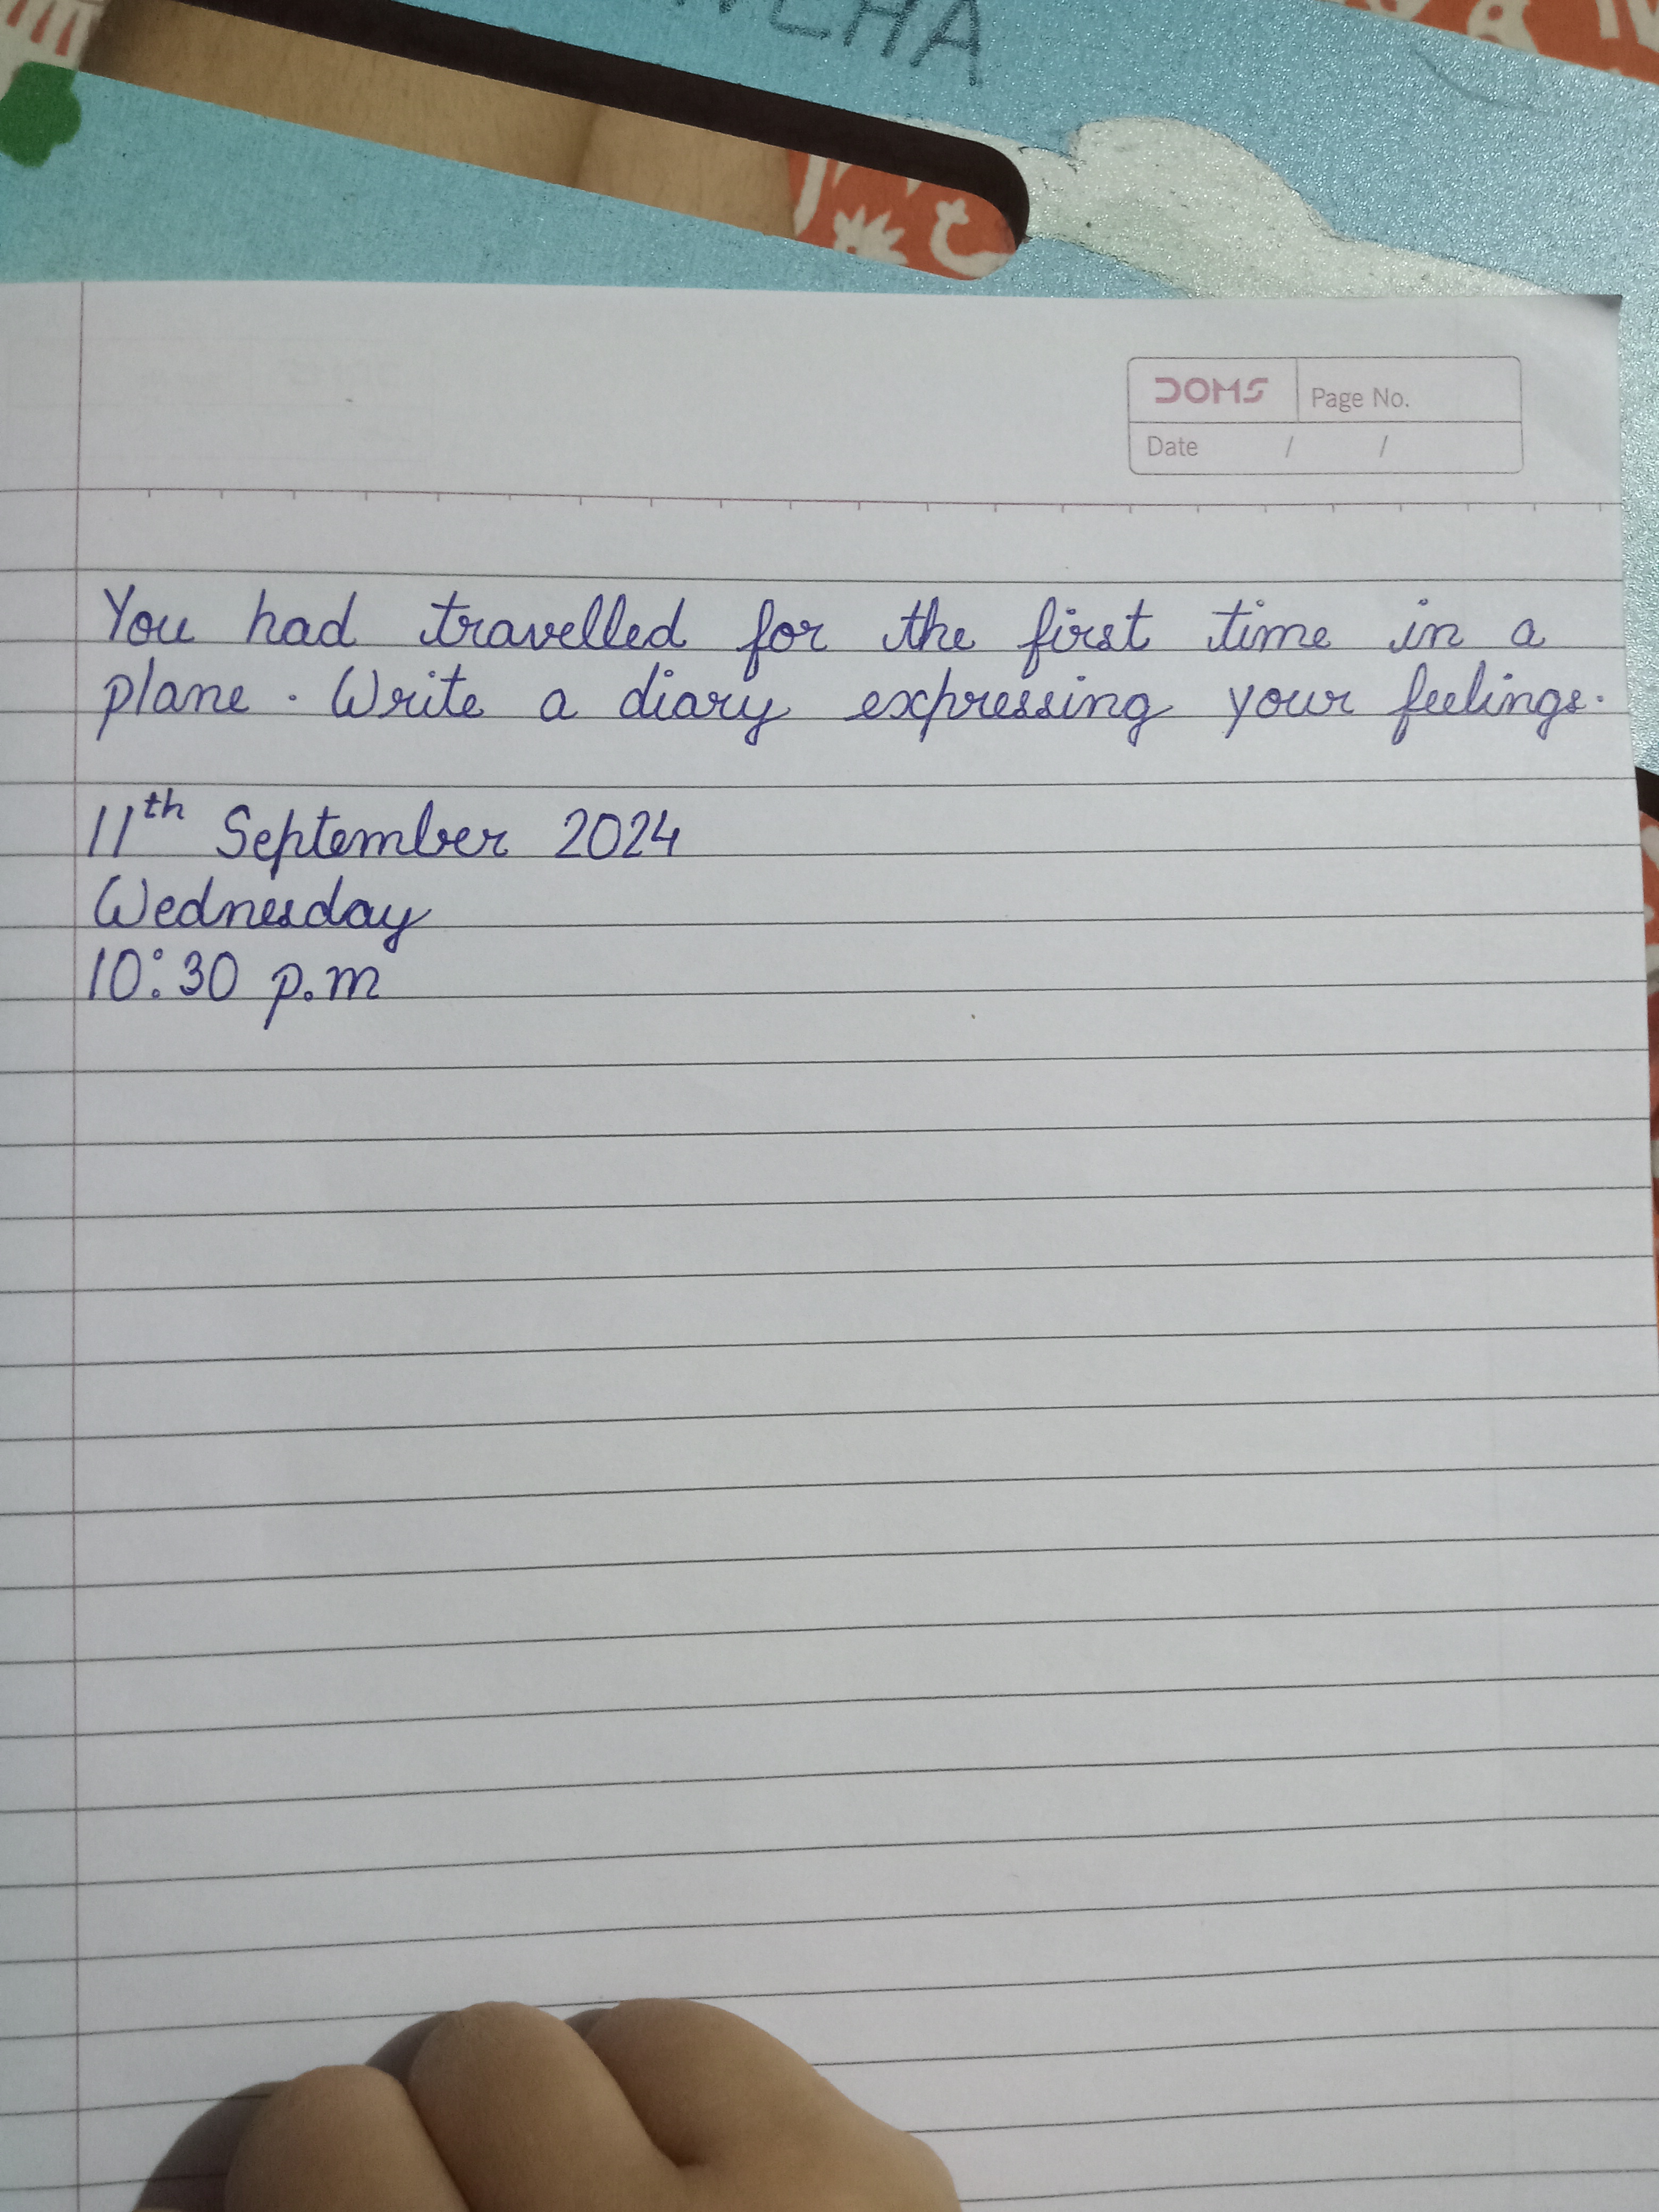 DOMS Page No.
Date / /
You had travelled for the first time in a
plane. Write a diary expressing your feelings.
11th September 2024
Wednesday
10:30 p.m